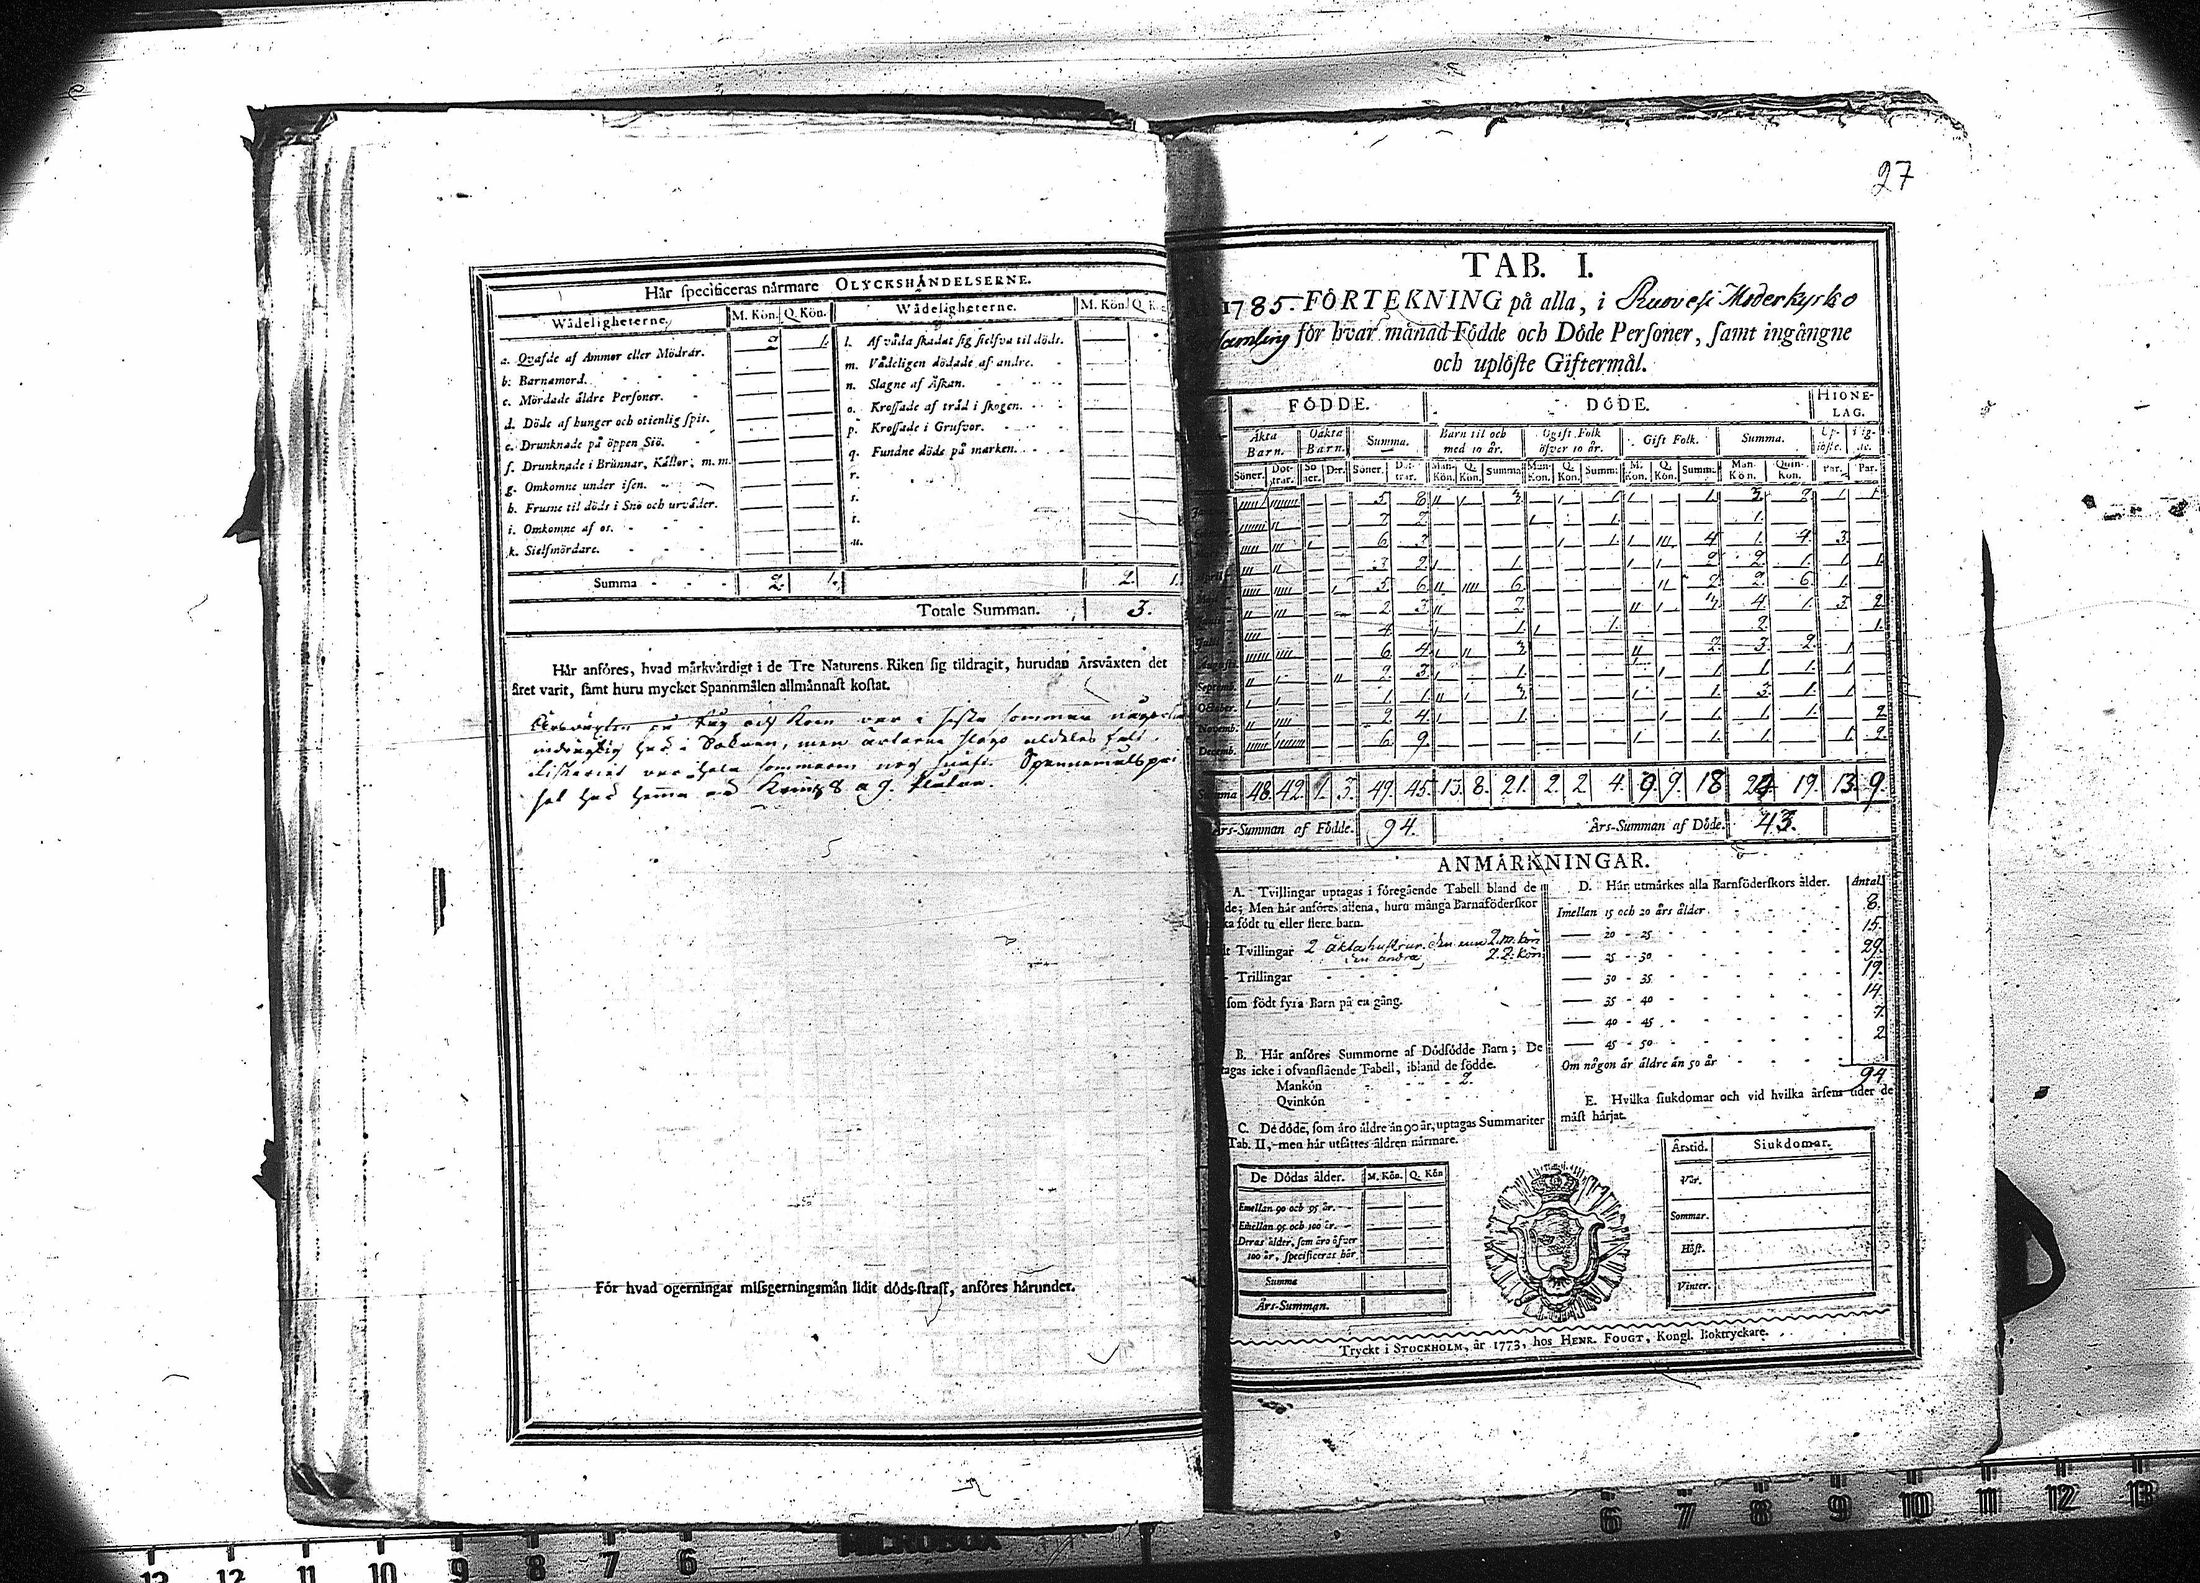 27
Här specificeras närmare OLYCKSHÄNDELSERNE.
Wådeligheterne. M. Kön. Q. Kön. Wådeligheterne. M. Kön. Q. K
a. Qvafde af Ammor eller Mödrar. 2 1. l. Af våda skadat sig sielfva til döds.
b. Barnamord. m. Vådeligen dödade af andre.
c. Mördade äldre Personer. n. Slagne af Åskan.
d. Döde af hunger och otienlig spis. o. Krossade af träd i skogen.
e. Drunknade på öppen Siö. p. Krossade i Grufvor.
f. Drunknade i Brunnar, Källor, m. m. q. Fundne döde på marken.
g. Omkomne under isen. r.
h. Frusne til döds i Snö och urväder. s.
i. Omkomne af os. t.
k. Sielfmördare. u.
Summa 2. 1. 2 1.
Totale Summan. 3.
Här anföres, hvad märkvärdigt i de Tre Naturens Riken sig tildragit, hurudan Årsväxten det
året varit, samt huru mycket Spannmålen allmännast kostat.
Årsväxten Råg och Korn var i sista sommar
i Soknen, men ärterne slogo aldeles felt.
Fiskeriet var hela sommaren nog Spannemåls pri
set har hemma 8 a 9. Plåtar.
För hvad ogerningar missgerningsmän lidit döds-straff, anföres härunder.
TAB. I.
1785. FÖRTEKNING på alla, i Ruovesi Moderkyrko
samling för hvar månad Födde och Döde Personer, samt ingångne
och uplöste Giftermål.
FÖDDE. DÖDE. HIONE-
LAG.
Äkta Barn. Oäkta Barn. Summa. Barn til och med 10 år. Ogift Folk öfver 10 år. Gift Folk. Summa. Up-löste. Par.
Söner. Dot-trar. Sö ner. Dtr. Söner. Dot-trar. Man-Kön. Q. Kön. Summa Man-Kön. Q. Kön. Summ. M. Kön. Q. Kön. Summ. Man-Kön. Quin-Kön. Par. Par.
5 8 3 1 1 3 2 1 1
2 2 1 1
6 3 1 4 1 4 3
April 3 2 1 2 2 1 1 1
5 6 6 2 2 6 1
2 3 2 3 4 1 3 2
4 1 1 2 1
Augusti 6 4 3 2 3 2
Septemb. 2 3 1 1 1 1 1
October. 1 1 3 1 3 1 1
Novemb. 2 4 1 1 1 1 2
Decemb. 6 9 1 1 1 2
Summa 48. 42. 1. 3. 49. 45. 13. 8. 21. 2 2 4. 9 9. 18 24 19. 13. 9.
Års-Summan af Födde. 94. Års-Summan af Döde. 43.
ANMÄRKNINGAR.
A. Tvillingar uptagas i föregående Tabell bland de
de; Men här anföres allena, huru många Barnaföderskor
ka födt tu eller flere barn.
Tvillingar 2 äkta hustrur. den ena 2. m. kön
den andra 2. Q. kön
Trillingar
som födt fyra Barn på en gång.
B. Här anföres Summorne af Dödfödde Barn; De
tagas icke i ofvanstående Tabell, ibland de födde.
Mankön 2.
Qvinkön
C. De döde, som äro äldre än 90 år, uptagas Summariter
Tab. II, men här utsättes åldren närmare.
De Dödas ålder. M. Kön. Q. Kön
Emellan 90 och 95 år.
Emellan 95 och 100 år.
Deras ålder, som äro öfver
100 år, specificeras här
Summa
Års-Summan.
D. Här utmärkes alla Barnföderskors ålder. Antal
Imellan 15 och 20 års ålder. 8.
20 - 25 15.
25 - 30 29.
30 - 35 19.
35 - 40 14.
40 - 45 7.
45 - 50 2
Om någon är äldre än 50 år
94
E. Hvilka siukdomar och vid hvilka årsens tider de
mäst härjat.
Årstid. Siukdomar.
Vår.
Sommar.
Höst.
Vinter.
Tryckt i STOCKHOLM, år 1773, hos HENR. FOUGT, Kongl. Boktryckare.
12 11 10 9 8 7 6
MICROBOX
6 7 8 9 10 11 12 13